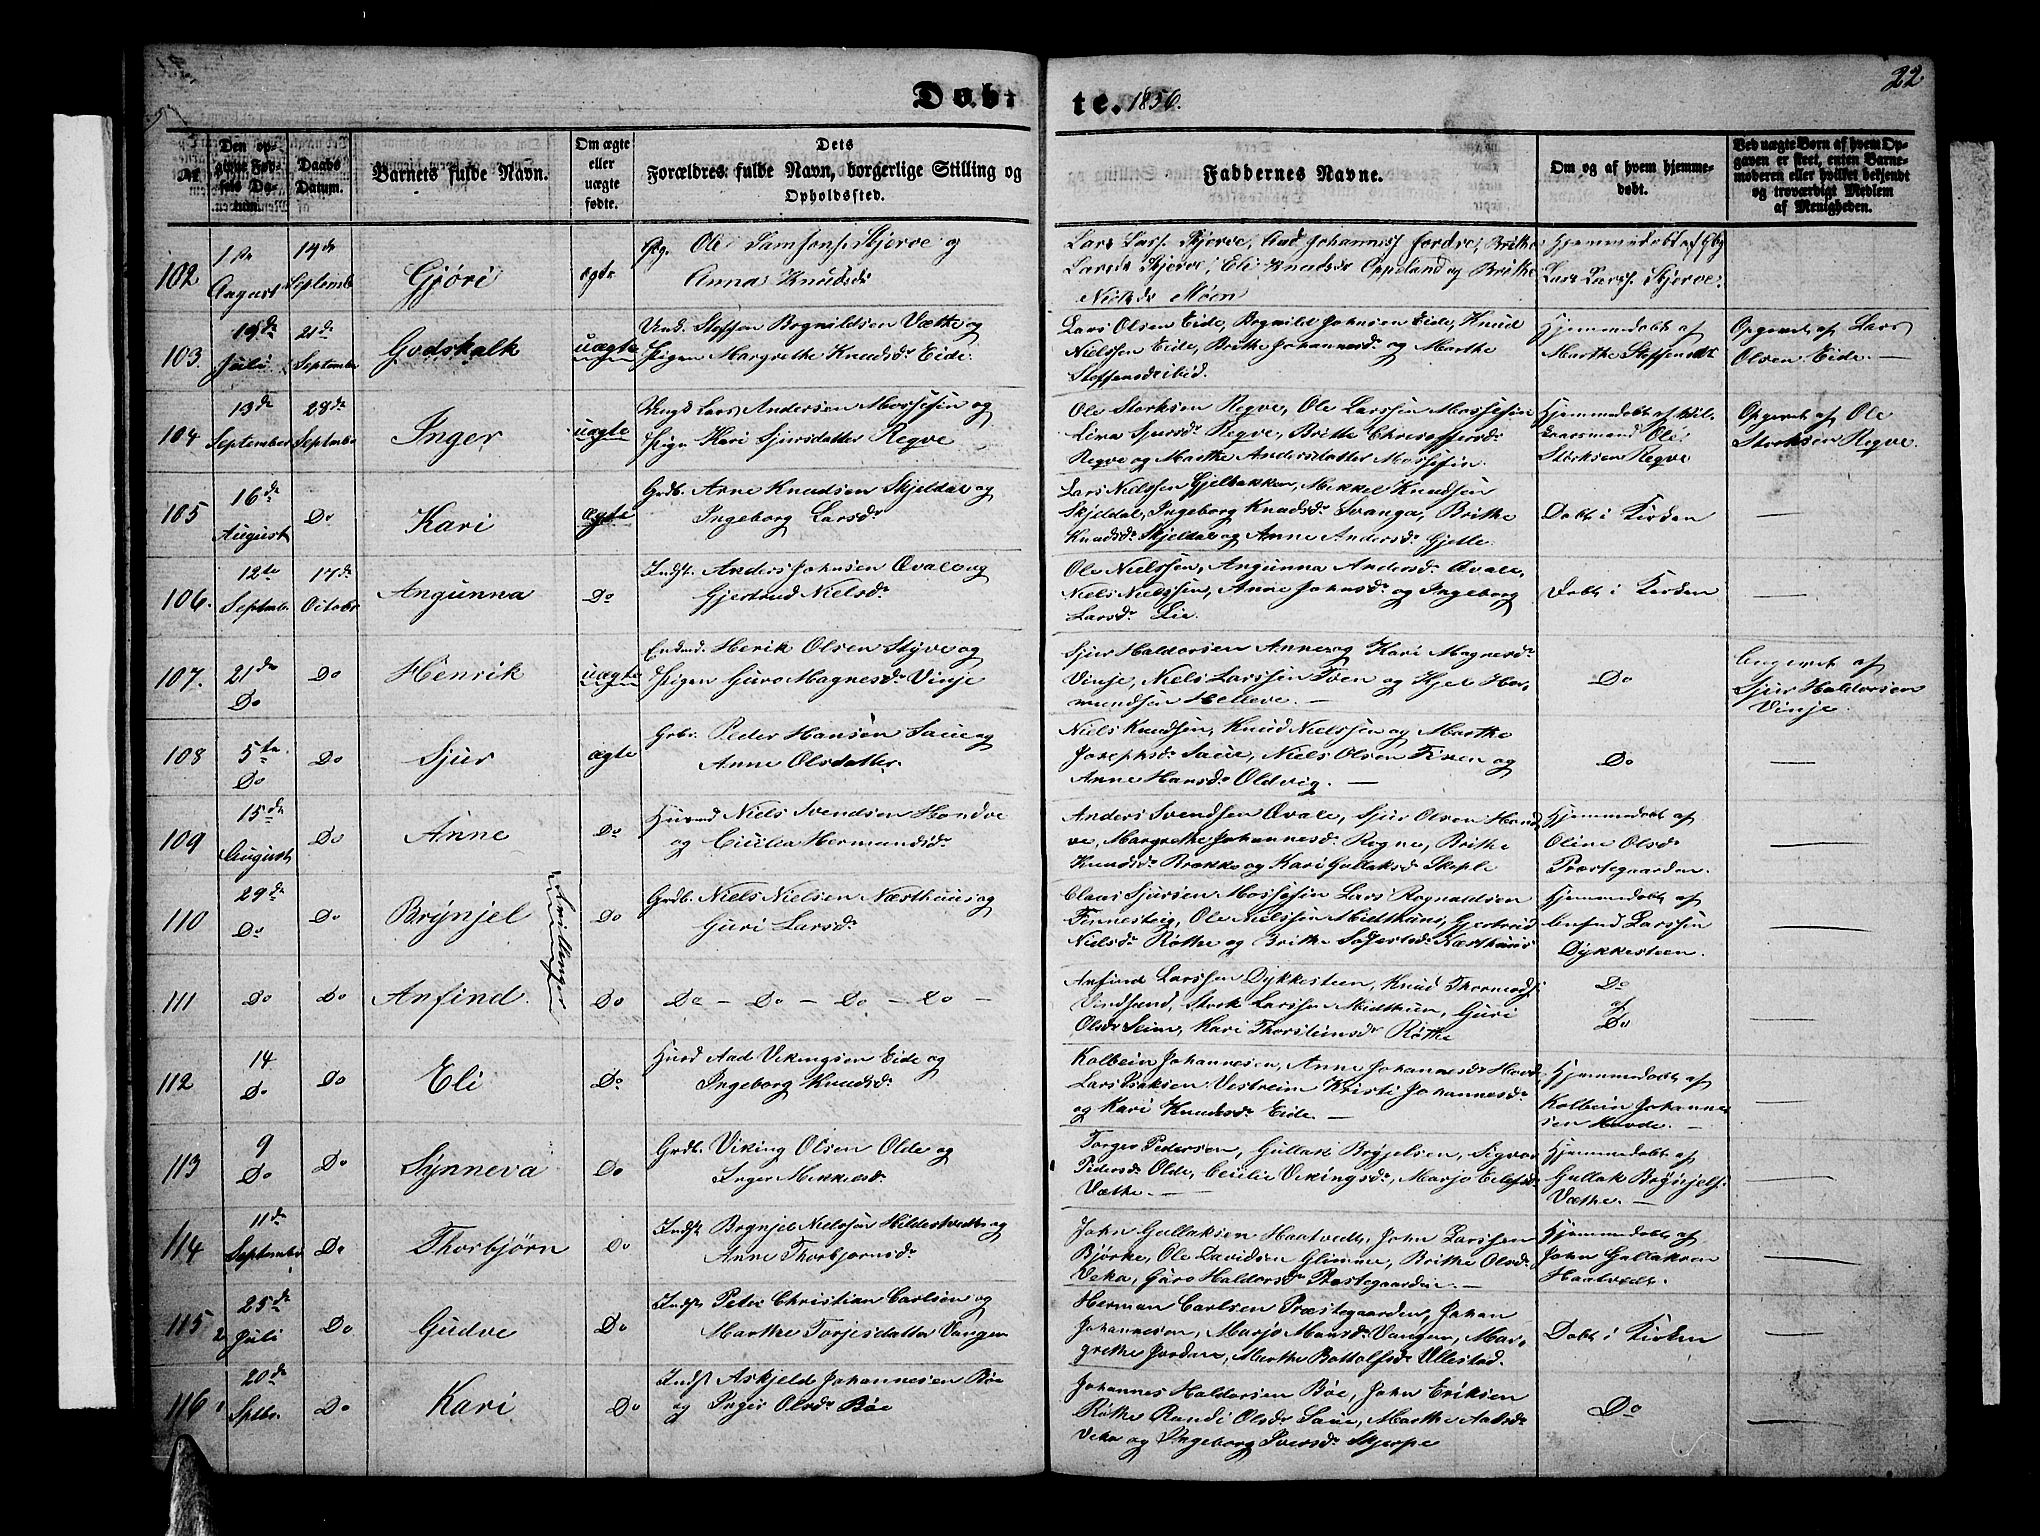 Døbte. 1856.
22.
№
Den opgivne Fødsels Datum.
Daabs Datum.
Barnets fulde Navn.
Om ægte eller uægte fødte.
Dets Forældres fulde Navn, borgerlige Stilling og Opholdssted.
Faddernes Navne.
Om og af hvem hjemmedøbt.
Ved uægte Børn af hvem Opgaven er skeet, enten Barnemoderen eller hvilket bekjendt og troværdigt Medlem af Menigheden.
102
August
14de September
Gjöri
ægte
Ole Samsons. Skjerve og
Anna Knudsdr
Lars Larss. Skjerve, Aad Johanness Jordre, Brithe
Larsdr Skjerve, Eli Knudsdr Oppeland og Brithe
Nielsdr Möen
Hjemmedøbt af
Lars Larss. Skjerve.
103.
19de Juli
21de September
Godskalk
uægte
Und. Steffen Brynildsen Væthe og
Pigen Margrethe Knudsdr Eide
Lars Olsen Eide, Brynild Johnsen Eide, Knud
Nielssen Eide, Brithe Johannesdr og Marthe
Steffensdr ibid.
Hjemmedøbt af
Marthe Steffensdr
Opgivet af Lars
Olsen Eide. —
104
13de September
28de Septembr
Inger
uægte
Ungk Lars Andersen Mossefin og
Pign Kari Sjursdatter Reqve
Ole Storksen Reqve, Ole Larssen Mossefin
Liva Sjursdr Reqve, Brithe Christoffersdr
Reqve og Marthe Andersdatter Mossefin.
Hjemmedøbt af
Ole
Storksen Reqve
Opgivet af Ole
Storksen Reqve.
105
16de August
Do
Kari
ægte
Grdb. Arne Knudsen Skjeldal og
Ingeborg Larsdr
Lars Nielssen Gjelbakken, Mikkel Knudsen
Skjeldal, Ingeborg Knudsdr Svanga, Brithe
Knudsdr Skjeldal og Anne Andersdr Gjelle.
Døbt i Kirken
—
106.
12te Septembr
17de Octobr
Angunna
Do
Indst. Anders Johnsen Qvale og
Gjertrud Nielsdr
Ole Nielssen, Angunna Andersdr Qvale,
Niels Nielssen, Anne Johnsdr og Ingeborg
Larsdr Lie.
Døbt i Kirken
—
107.
21de Do
Do
Henrik
uægte
Enkmd. Herik Olsen Styve og
Pigen Guro Magnesdr Vinje
Sjur Haldorsen Anne og Kari Magnesdr
Vinje, Niels Larssen Tven og Kjel Her-
mundsen Helleve. —
Do
Opgivet af
Sjur Haldorsen
Vinje.
108
5te Do
Do
Sjur
ægte
Grbr. Peder Hansen Saue og
Anne Olsdatter
Niels Knudsen, Knud Nielssen og Marthe
Josephsdr Saue, Niels Olsen Tven og
Anne Hansdr Oldvig. —
Do
—
109
15de August
Do
Anne
Do
Husmd Niels Svendsen Hondve
og Cicilia Hermundsdr
Anders Svendsen Qvale, Sjur Olsen Hond-
ve, Margrethe Johannesdr Rogne, Brithe
Knudsdr Brække og Kari Gullaksdr Skiple
Hjemmedøbt af
Oline Olsdr
Præstegaarden.
—
110
29de Do
Do
Brynjel
Tvillinger
Do
Grdb. Niels Nielsen Næsthuus og
Guri Larsdr
Claus Sjursen Mossefin Lars Rognaldsen
Finnesteig, Ole Nielssen Midthuus, Gjertrud
Nielsdr Röthe og Brithe Næsthuus
Hjemmedøbt af
Anfind Larssen
Dykkesteen.
—
111
Do
Do
Anfind.
Do
Do — Do — Do — Do —
Anfind Larssen Dykkesteen, Knud Thormods.
Vindsand, Stork Larssen Midthun, Guri
Olsdr Seim, Kari Thorsteinsdr Röthe
Do
af
Do
—
112
14 Do
Do
Eli
Do
Husmd Aad Vikingsen Eide og
Ingeborg Knudsdr
Kolbein Johannesen, Anne Johannesdr Hovde
Lars Isaksen Vestreim Kristi Johannesdr
og Kari Knudsdr Eide. —
Hjemmedøbt af
Kolbein Johannes-
sen Hovde. —
—
113
9 Do
Do
Synneva
Do
Grdb. Viking Olsen Olde og
Inger Mikkelsdr
Torger Pedersen, Gullak Brynjelsen, Sigvor
Pedersdr Olde, Cicilie Vikingsdr, Marjo Eilefsdr
Væthe. —
Hjemmedøbt af
Gullak Brynjelss.
Væthe. —
—
114
11de September
Do
Thorbjörn
Do
Indst Brynjel Nielssen Hildestvedt og
Anne Thorbjornsdr
John Gullaksen Haatvedt, John Larssen
Björke, Ole Davidsen Glimme, Brithe Olsdr
Veka, Guro Haldorsdr Præstegaarden. —
Hjemmedøbt af
John Gullaksen
Haatvedt.
—
115
25de Juli
Do
Gudve
Do
Indst Peter Christian Carlsen og
Marthe Torjesdatter Vangen
Herman Carlsen Præstegaarden, Johan
Johannesen, Marjo Monsdr Vangen, Mar-
grethe Jordan, Marthe Bottolfsdr Ullestad.
Døbt i Kirken
—
116
20de Sptbr.
Do
Kari
Do
Indst Askjeld Johannesen Böe
og Inger Olsdr Böe
Johannes Haldorsen Böe, John Eriksen
Röthe Randi Olsdr Saue, Marthe Aadsdr
Veka og Ingeborg Iversdr Skjerpe
Do
—